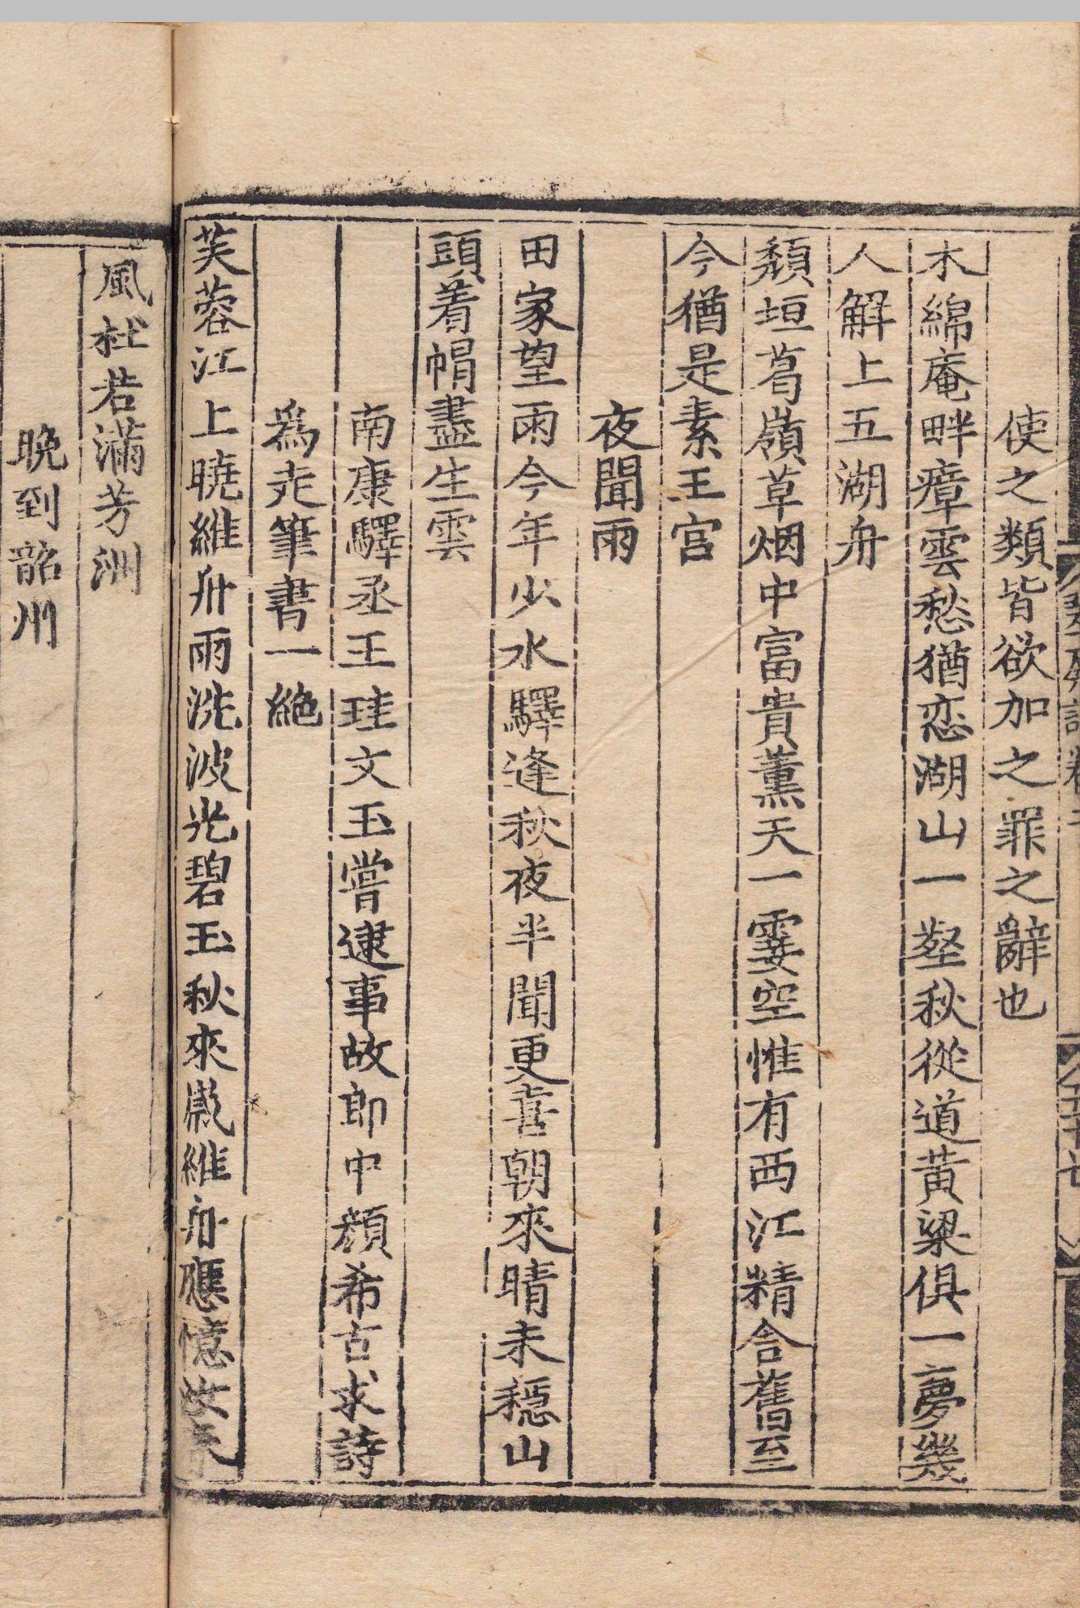 使之類皆欲加之罪之辭也
木綿庵畔瘴雲愁猶恋湖山一壑秋從道黃粱俱一夢幾
人解上五湖舟
頹垣葛嶺草烟中富貴薰天一霎空惟有西江精舍舊至
今猶是素王宫
夜聞雨
田家望雨今年少水驛逢秋夜半聞更喜朝來晴未穩山
頭着帽盡生雲
南康驛丞王珪文玉嘗逮事故郎中顏希古求詩
爲走筆書一絶
芙蓉江上曉維舟雨洗波光碧玉秋來歲維舟應憶故
風杜若滿芳洲
晚到韶州